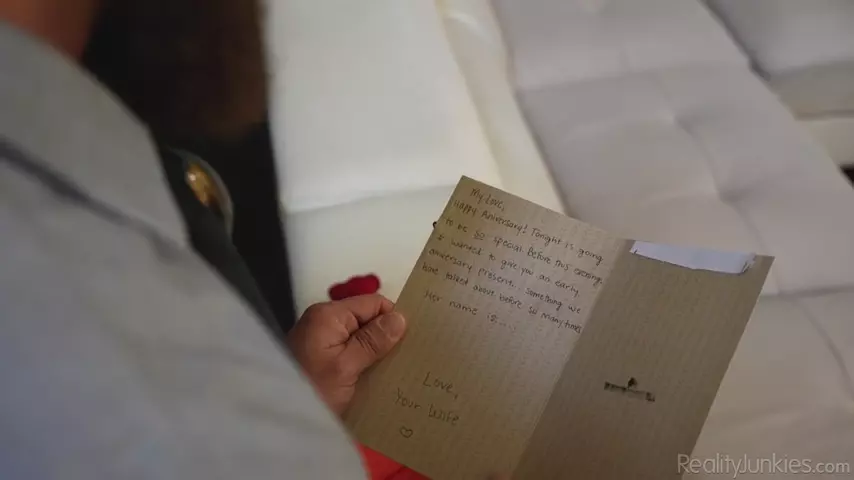 My Love,
Happy Aniversary! Tonight is going
to be so special. Before this evening,
I wanted to give you an early
aniversary present. Something we
have talked about before so many times
Her name is....
Love,
Your Wife
RealityJunkies.com